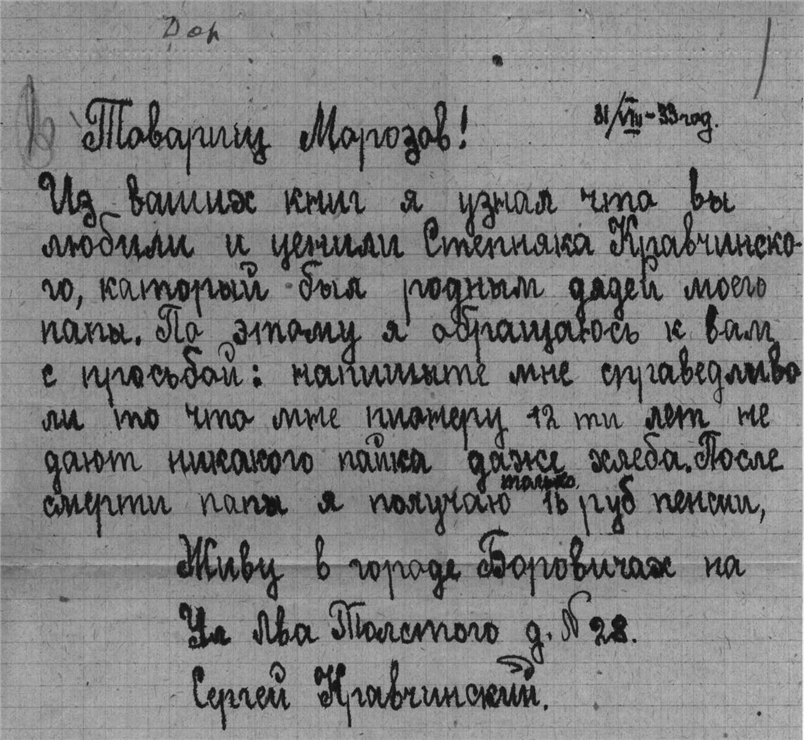 Дор
Товарищ Морозов! 31/VIII-33 год.
Из ваших книг я узнал что вы
любили и ценили Степняка Кравчинско-
го, каторый был родным дядей моего
папы. По этому я обращаюсь к вам
с прозьбой: напишыте мне справедливо
ли то что мне пионеру 12 ти лет не
дают никакого пайка даже хлеба. После
смерти папы я получаю только 16 руб пенсии,
Живу в городе Боровичах на
Ул Лва Толстого д. № 28.
Сергей Кравчинский.